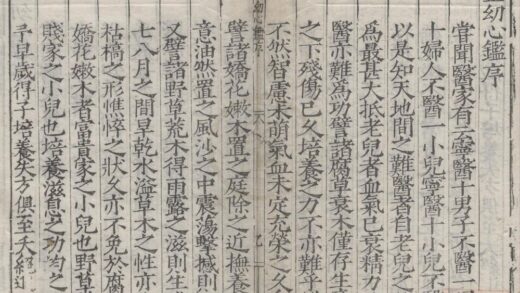 幼心鑑序
嘗聞醫家有云寧醫十男子不醫一
十婦人不醫一小兒寧醫十小兒不
以是知天地間之難醫者自老兒之
爲最甚大抵老兒者血氣已衰精力
醫亦難爲功譬諸腐草衰木僅存生
之下殘傷已久培養之力不亦難乎
不然智慮未萌氣血未定充榮之久
譬諸嬌花嫩木置之庭除之近撫養
意油然置之風沙之中震蕩擊撼則
又譬諸野草荒木得雨露之滋則生
七八月之間旱乾水溢草木之性亦
枯槁之形憔悴之狀久亦不免於腐
嬌花嫩木者富貴家之小兒也野草
賤家之小兒也培養滋息之功均之
予早歲得子培養失方俱至夭